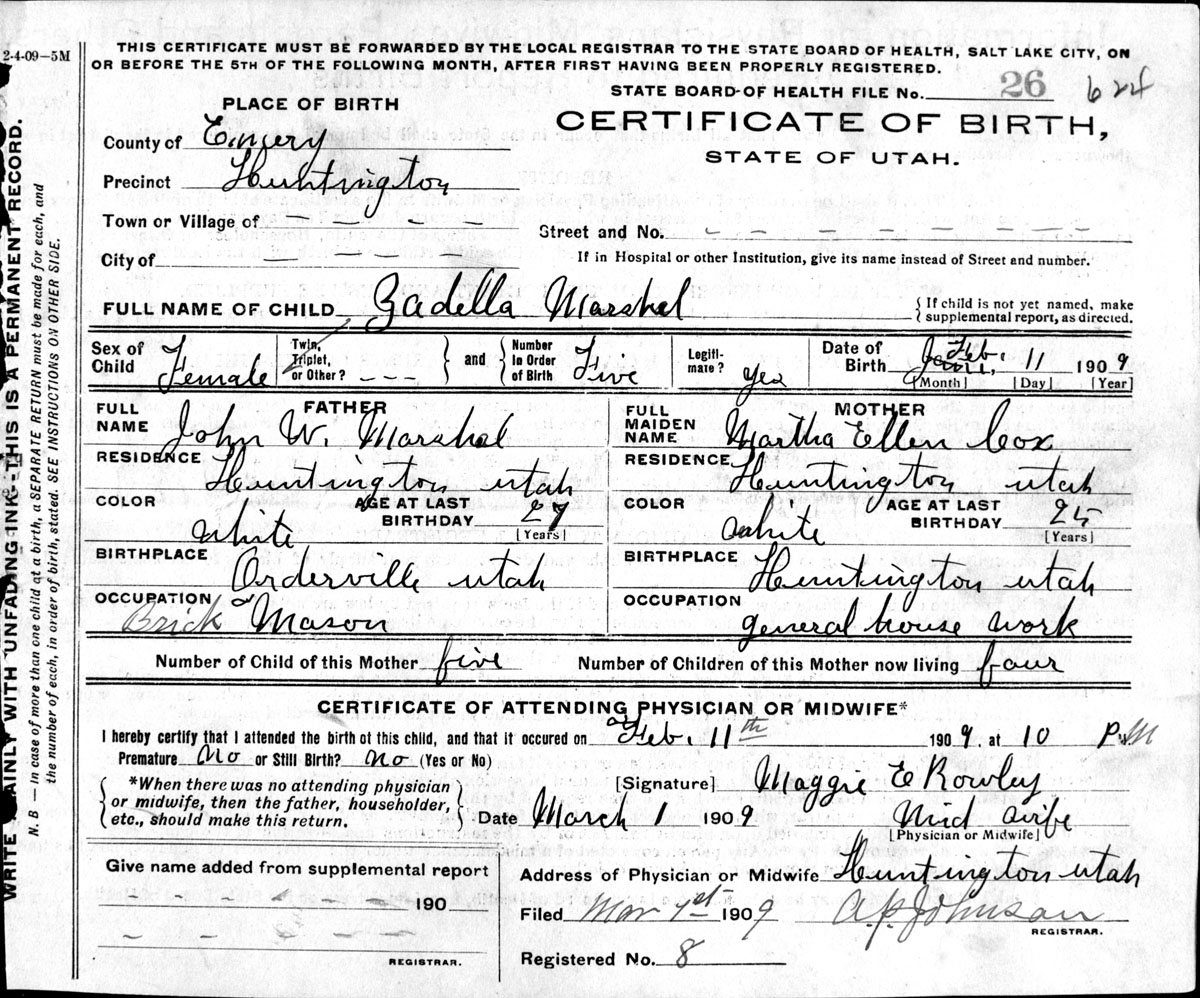 2-4-09—5M
THIS CERTIFICATE MUST BE FORWARDED BY THE LOCAL REGISTRAR TO THE STATE BOARD OF HEALTH, SALT LAKE CITY, ON
OR BEFORE THE 5TH OF THE FOLLOWING MONTH, AFTER FIRST HAVING BEEN PROPERLY REGISTERED.
STATE BOARD OF HEALTH FILE No. 26 624
PLACE OF BIRTH
CERTIFICATE OF BIRTH,
STATE OF UTAH.
County of Emery
Precinct Huntington
Town or Village of — — — — —
Street and No. — — — — — — — —
City of — — — — —
If in Hospital or other Institution, give its name instead of Street and number.
FULL NAME OF CHILD Zadella Marshel
{ If child is not yet named, make
supplemental report, as directed.
Sex of Child Female
Twin, Triplet, or Other? — — —
and
Number In Order of Birth Five
Legiti-mate? Yes
Date of Birth Feb. 11 1909
[Month] [Day] [Year]
FATHER
FULL NAME John W. Marshel
RESIDENCE Huntington utah
COLOR White
AGE AT LAST BIRTHDAY 27 [Years]
BIRTHPLACE Orderville utah
OCCUPATION Brick Mason
MOTHER
FULL MAIDEN NAME Martha Ellen Cox
RESIDENCE Huntington utah
COLOR white
AGE AT LAST BIRTHDAY 25 [Years]
BIRTHPLACE Huntington utah
OCCUPATION general house work
Number of Child of this Mother five
Number of Children of this Mother now living four
CERTIFICATE OF ATTENDING PHYSICIAN OR MIDWIFE*
I hereby certify that I attended the birth of this child, and that it occured on Feb. 11th 1909. at 10 P.M
Premature No or Still Birth? No (Yes or No)
*When there was no attending physician
or midwife, then the father, householder,
etc., should make this return.
[Signature] Maggie E Rowley
Date March 1 1909 Mid wife
[Physician or Midwife]
Give name added from supplemental report
— — — — — 190
— — — —
REGISTRAR.
Address of Physician or Midwife Huntington utah
Filed Mar 1st 1909 A.P. Johnson
REGISTRAR.
Registered No. 8
WRITE PLAINLY WITH UNFADING INK—THIS IS A PERMANENT RECORD.
N. B — In case of more than one child at a birth, a SEPARATE RETURN must be made for each, and
the number of each, in order of birth, stated. SEE INSTRUCTIONS ON OTHER SIDE.